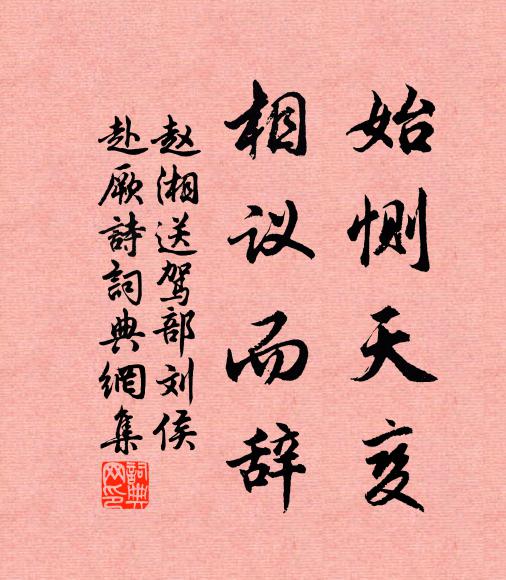 始恻天变
相议而辞
赵湘送驾部刘侯
赴厥詩詞典網集
詞典网印